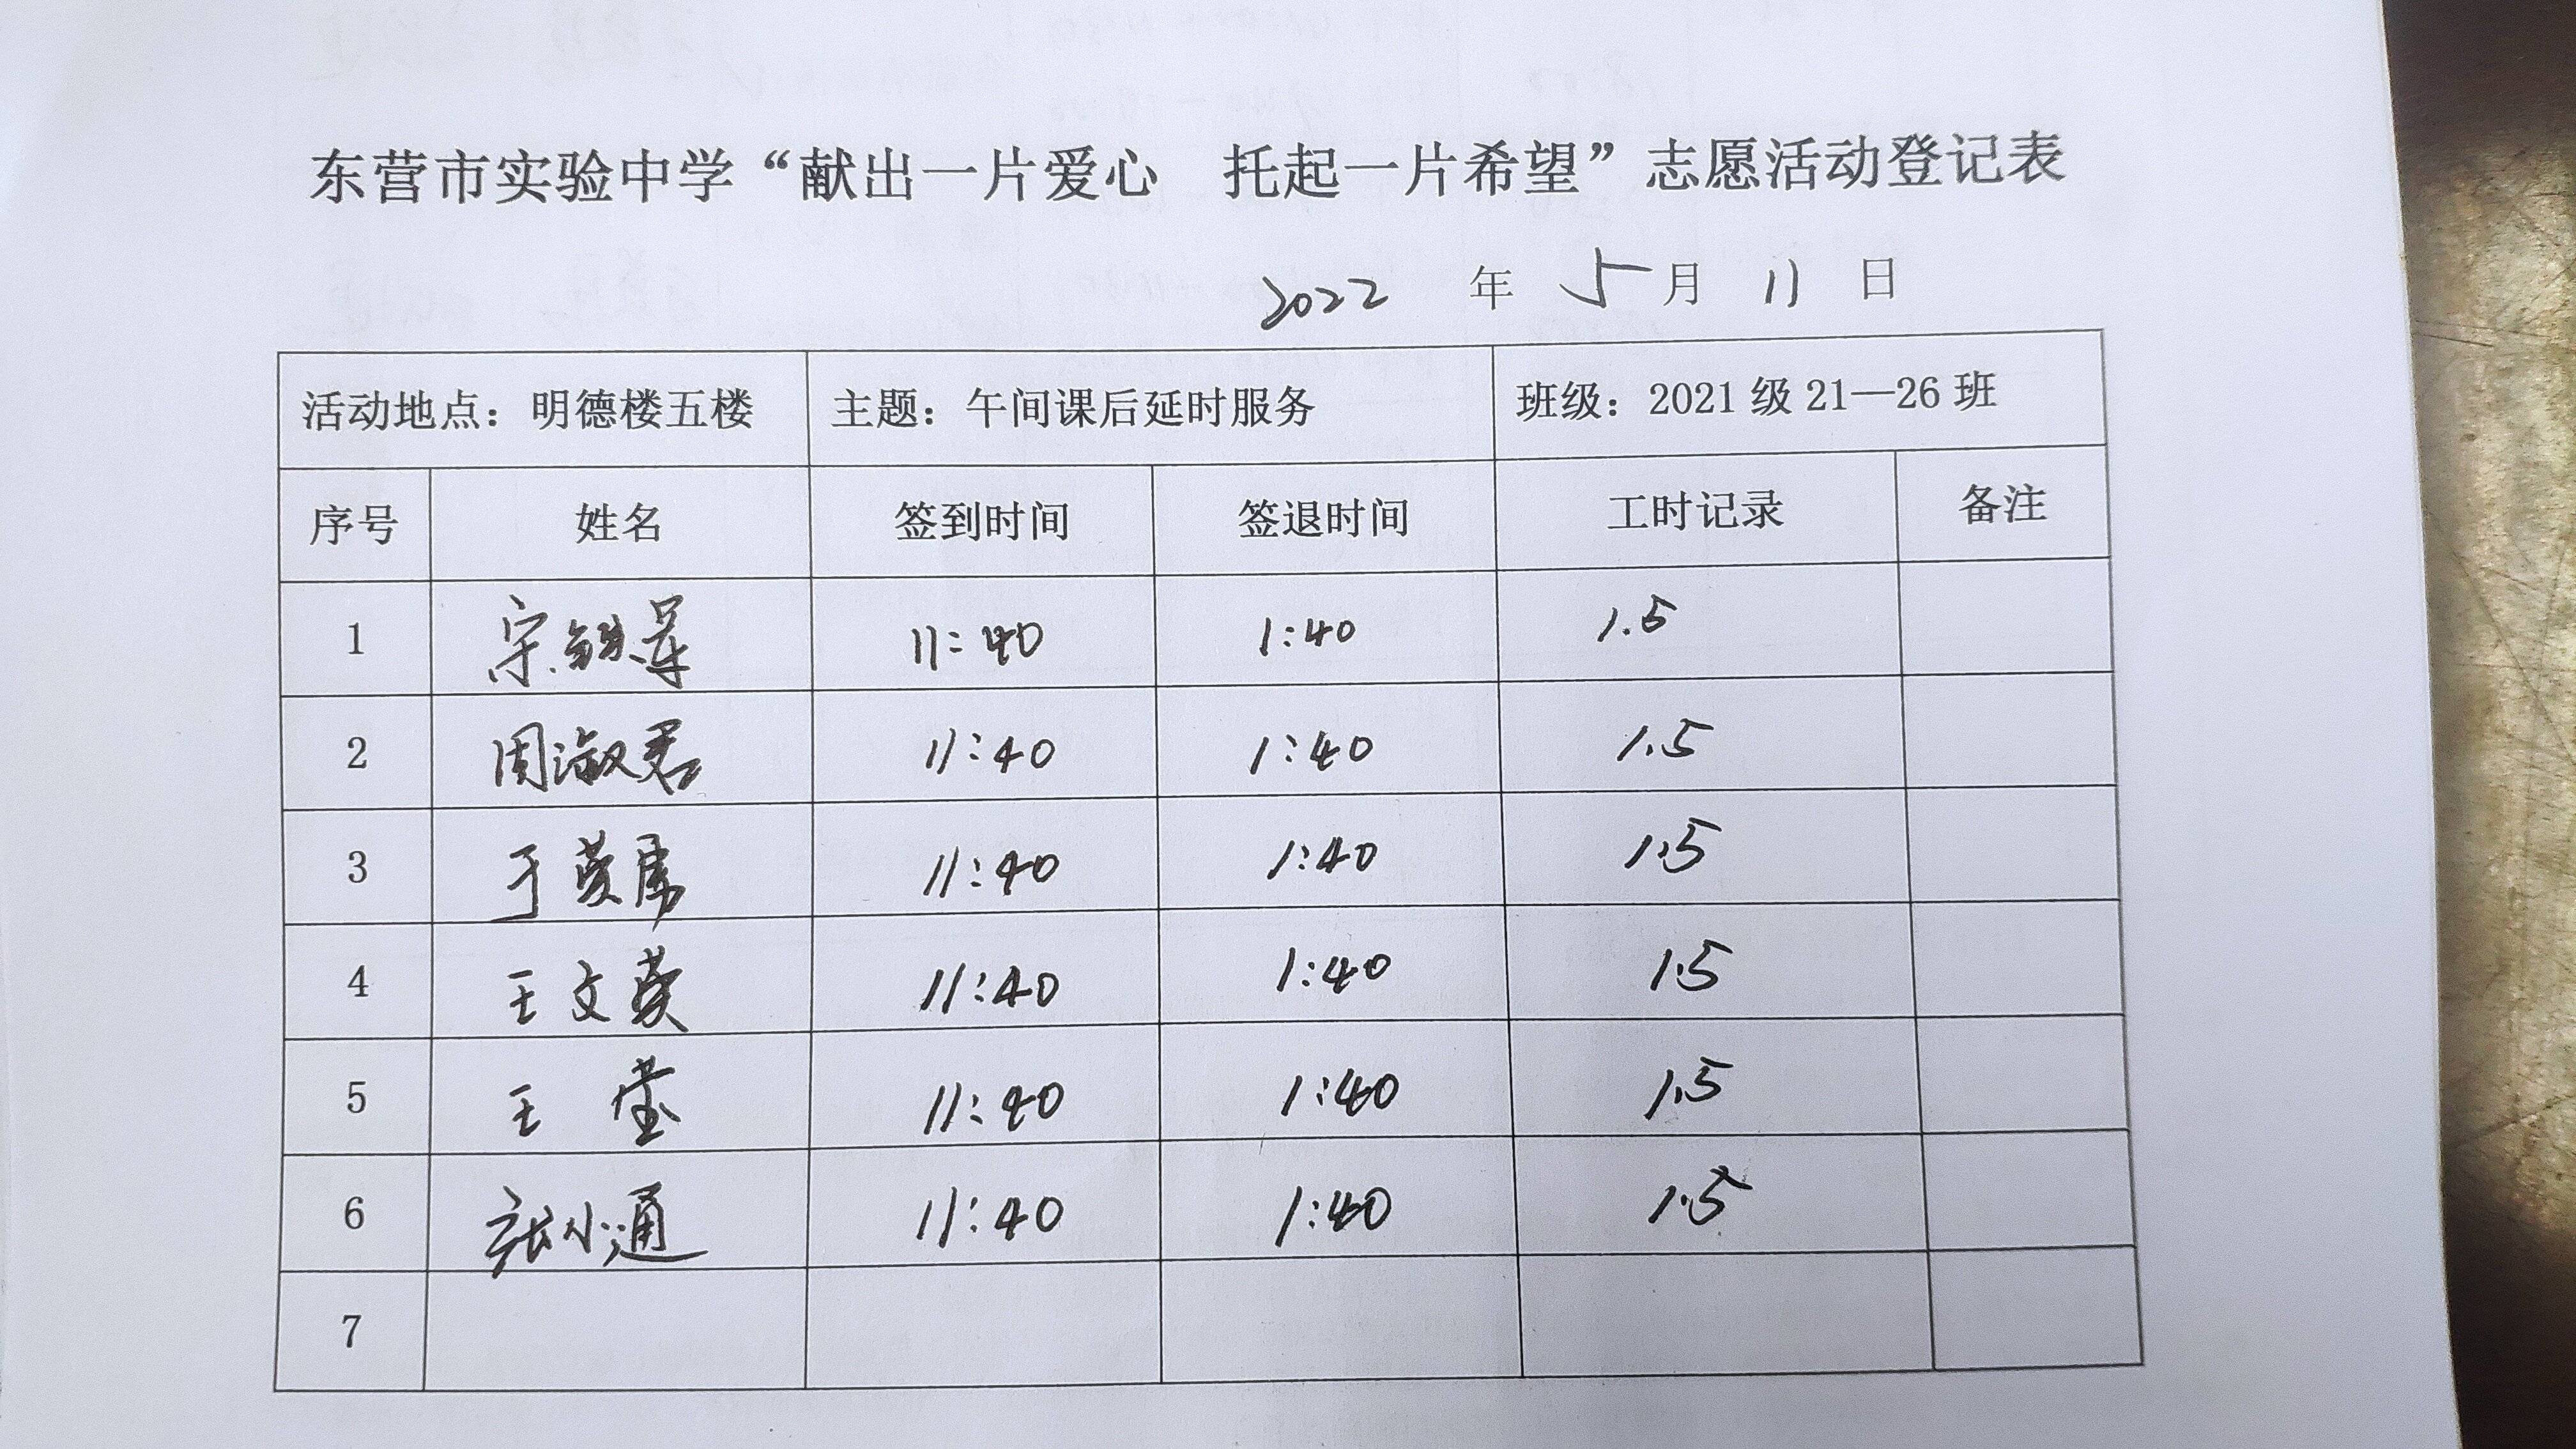 东营市实验中学“献出一片爱心 托起一片希望”志愿活动登记表
2022 年 5 月 11 日
活动地点：明德楼五楼 主题：午间课后延时服务 班级：2021 级 21—26 班
序号 姓名 签到时间 签退时间 工时记录 备注
1 宋 11:40 1:40 1.5
2 周淑君 11:40 1:40 1.5
3 于 11:40 1:40 1.5
4 王文英 11:40 1:40 1.5
5 王莹 11:40 1:40 1.5
6 张小通 11:40 1:40 1.5
7